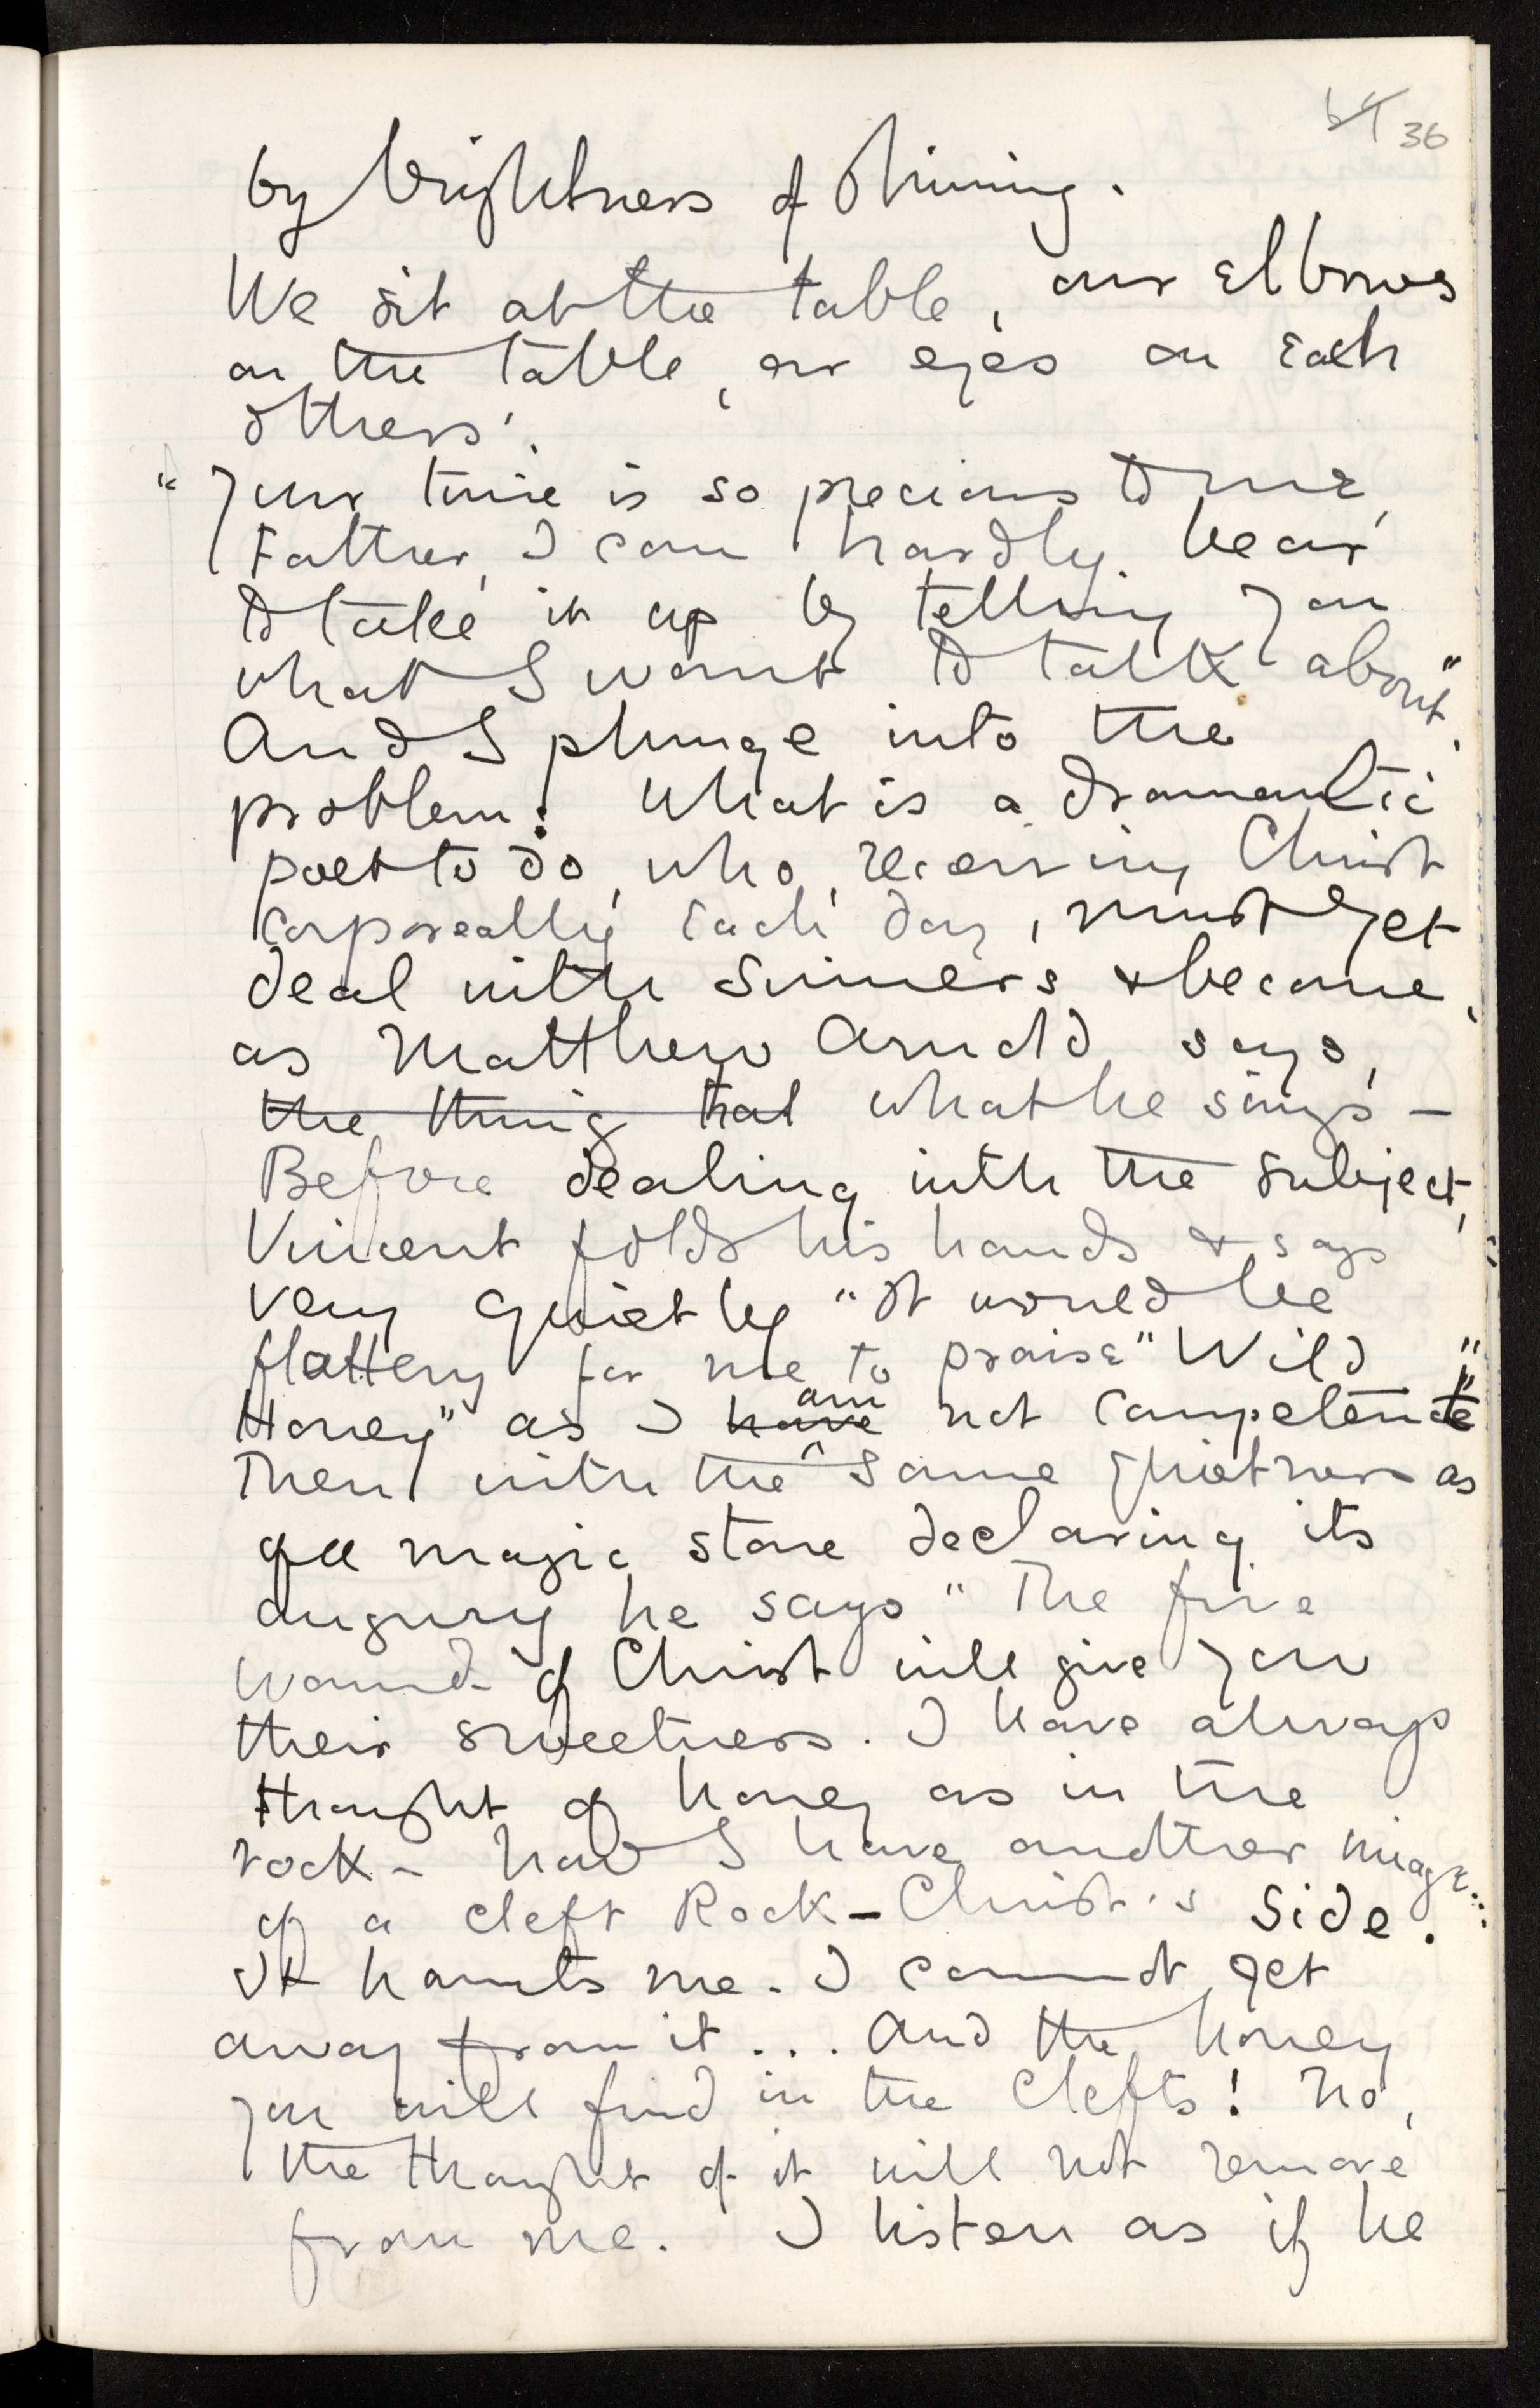 64 36
by brightness of shining.
We sit at the table, our elbows
on the table, our eyes on each
others'.
"Your time is so precious to me,
Father, I can hardly bear
to take it up by telling you
what I want to talk about".
And I plunge into the
problem: What is a dramatic
poet to do, who, receiving Christ
corporeally each day, must yet
deal with sinners & become,
as Matthew Arnold says,
the thing that what he sings –
Before dealing with the subject,
Vincent folds his hands & says
very quietly "It would be
flattery for me to praise "Wild
Honey" as I have am not competent"
Then with the same quietness as
of a magic stone declaring its
augury he says "The five
wounds of Christ will give you
their sweetness. I have always
thought of honey as in the
rock – now I have another image...
of a cleft Rock – Christ's Side.
It haunts me. I cannot get
away from it... And the honey
you will find in the Clefts! No,
the thought of it will not remove
from me. I listen as if he